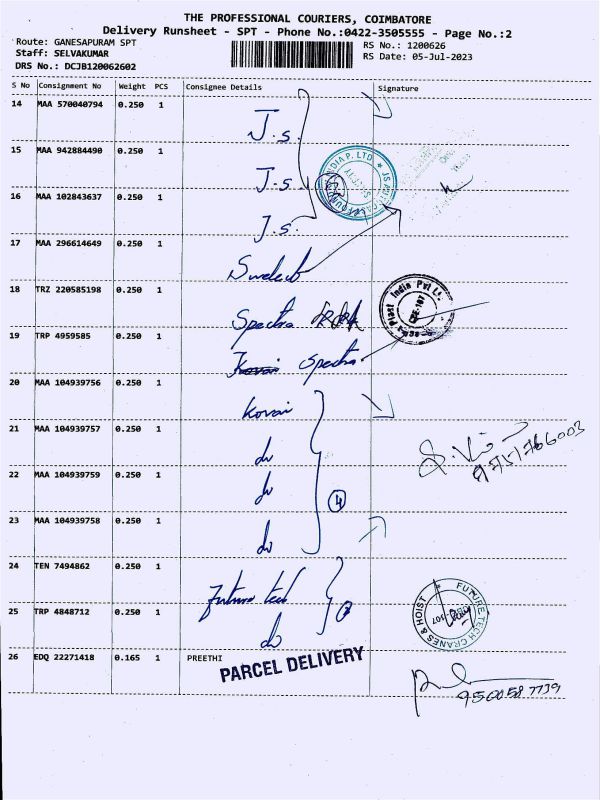 THE PROFESSIONAL COURIERS, COIMBATORE
Delivery Runsheet - SPT - Phone No.:0422-3505555 - Page No.:2
Route: GANESAPURAM SPT
RS No.: 1200626
Staff: SELVAKUMAR
RS Date: 05-Jul-2023
DRS No.: DCJB120062602
S No Consignment No Weight PCS Consignee Details Signature
14 MAA 570040794 0.250 1 J.s.
15 MAA 942884490 0.250 1 J.s.
16 MAA 102843637 0.250 1 J.s.
17 MAA 296614649 0.250 1
18 TRZ 220585198 0.250 1 Spectra
19 TRP 4959585 0.250 1 Spectra
20 MAA 104939756 0.250 1 Kovai
21 MAA 104939757 0.250 1 do
22 MAA 104939759 0.250 1 do
4
23 MAA 104939758 0.250 1 do
24 TEN 7494862 0.250 1 Future tech
25 TRP 4848712 0.250 1 do
FUTURE TECH CRANES & HOIST
26 EDQ 22271418 0.165 1 PREETHI
PARCEL DELIVERY
9500587739